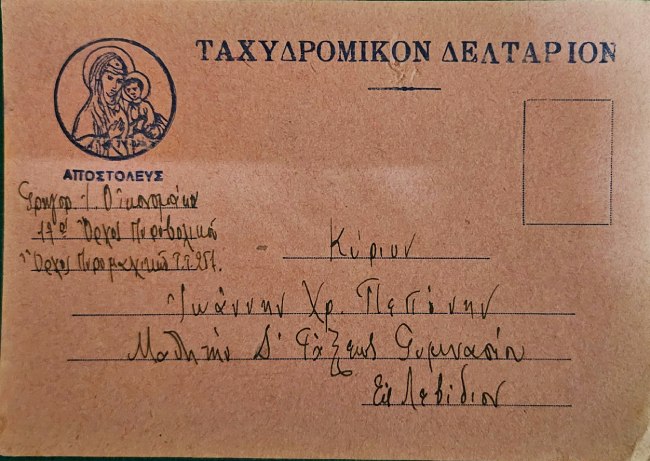 ΤΑΧΥΔΡΟΜΙΚΟΝ ΔΕΛΤΑΡΙΟΝ
ΑΠΟΣΤΟΛΕΥΣ
Γρηγορ. Ι. Οἰκονομάκο
17ον Ὄρχος Πυροβολικοῦ
Ὄρχος Πυρομαχικῶν Τ.Τ. 257.
Κύριον
Ἰωάννην Χρ. Πεπόνην
Μαθητὴν Δ' Τάξεως Γυμνασίου
Εἰς Λεβίδιον